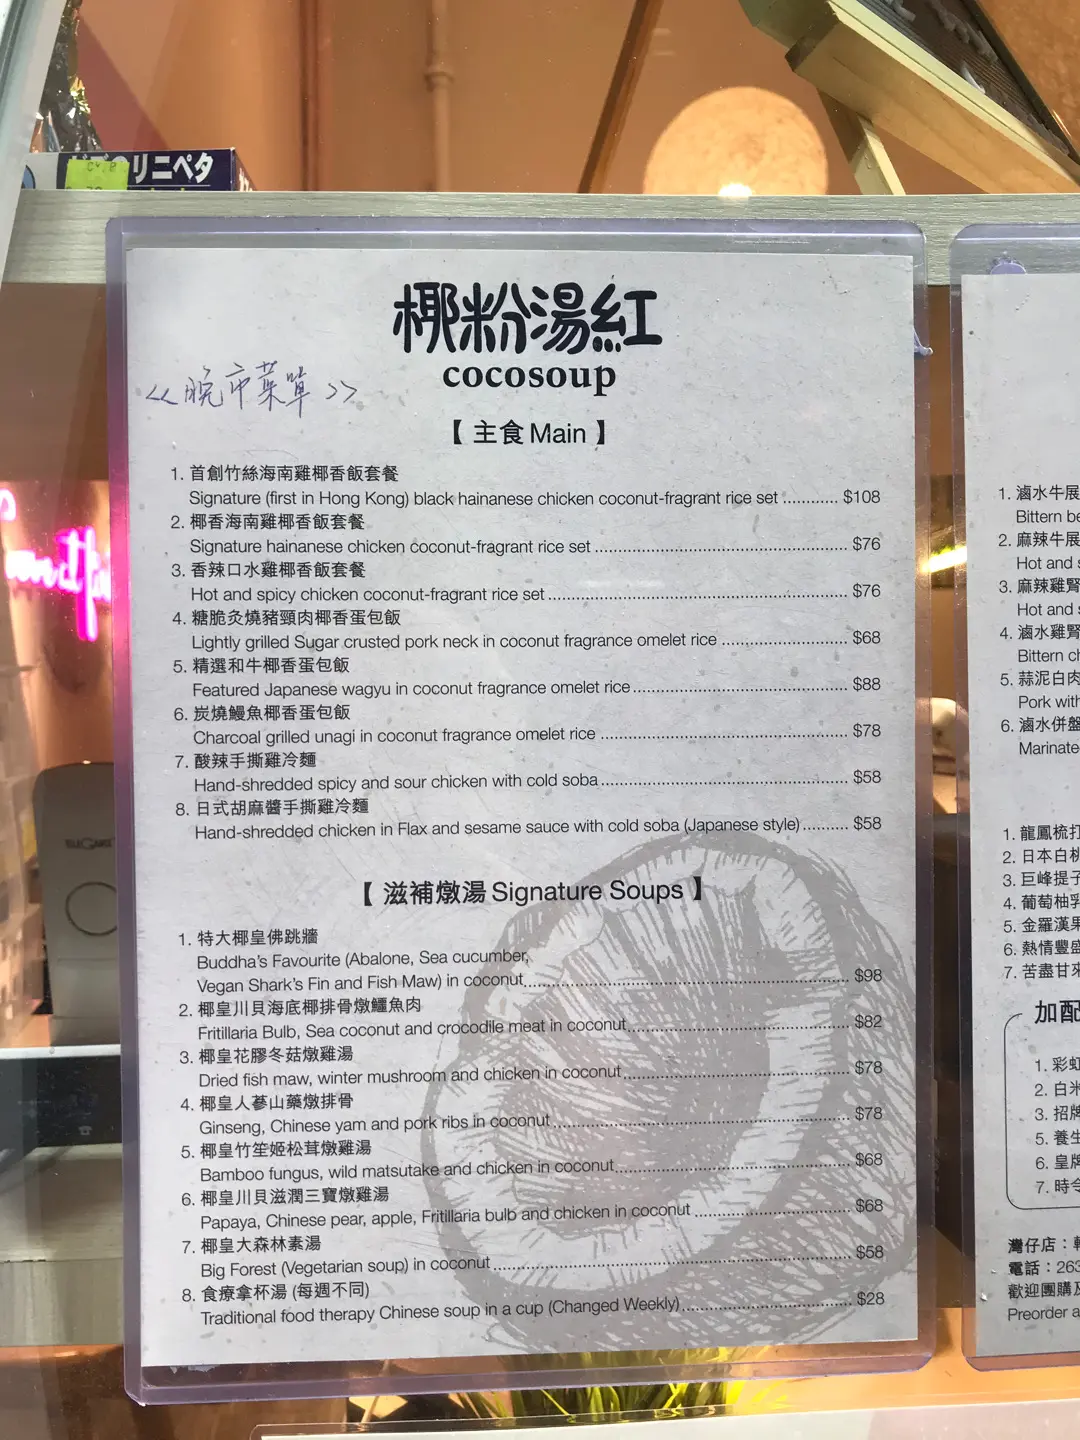 リニペタ
椰粉湯紅
cocosoup
<<晚市菜單>>
【 主食 Main 】
1. 首創竹絲海南雞椰香飯套餐
Signature (first in Hong Kong) black hainanese chicken coconut-fragrant rice set ........... $108
2. 椰香海南雞椰香飯套餐
Signature hainanese chicken coconut-fragrant rice set ........... $76
3. 香辣口水雞椰香飯套餐
Hot and spicy chicken coconut-fragrant rice set ........... $76
4. 糖脆灸燒豬頸肉椰香蛋包飯
Lightly grilled Sugar crusted pork neck in coconut fragrance omelet rice ........... $68
5. 精選和牛椰香蛋包飯
Featured Japanese wagyu in coconut fragrance omelet rice ........... $88
6. 炭燒鰻魚椰香蛋包飯
Charcoal grilled unagi in coconut fragrance omelet rice ........... $78
7. 酸辣手撕雞冷麵
Hand-shredded spicy and sour chicken with cold soba ........... $58
8. 日式胡麻醬手撕雞冷麵
Hand-shredded chicken in Flax and sesame sauce with cold soba (Japanese style) .......... $58
【 滋補燉湯 Signature Soups 】
1. 特大椰皇佛跳牆
Buddha's Favourite (Abalone, Sea cucumber,
Vegan Shark's Fin and Fish Maw) in coconut ........... $98
2. 椰皇川貝海底椰排骨燉鱷魚肉
Fritillaria Bulb, Sea coconut and crocodile meat in coconut ........... $82
3. 椰皇花膠冬菇燉雞湯
Dried fish maw, winter mushroom and chicken in coconut ........... $78
4. 椰皇人蔘山藥燉排骨
Ginseng, Chinese yam and pork ribs in coconut ........... $78
5. 椰皇竹笙姬松茸燉雞湯
Bamboo fungus, wild matsutake and chicken in coconut ........... $68
6. 椰皇川貝滋潤三寶燉雞湯
Papaya, Chinese pear, apple, Fritillaria bulb and chicken in coconut ........... $68
7. 椰皇大森林素湯
Big Forest (Vegetarian soup) in coconut ........... $58
8. 食療拿杯湯 (每週不同)
Traditional food therapy Chinese soup in a cup (Changed Weekly) ........... $28
1. 滷水牛展
Bittern be
2. 麻辣牛展
Hot and s
3. 麻辣雞腎
Hot and s
4. 滷水雞腎
Bittern ch
5. 蒜泥白肉
Pork with
6. 滷水併盤
Marinate
1. 龍鳳梳打
2. 日本白桃
3. 巨峰提子
4. 葡萄柚乳
5. 金羅漢果
6. 熱情豐盛
7. 苦盡甘來
加配
1. 彩虹
2. 白米
3. 招牌
5. 養生
6. 皇牌
7. 時令
灣仔店：
電話：263
歡迎團購及
Preorder a